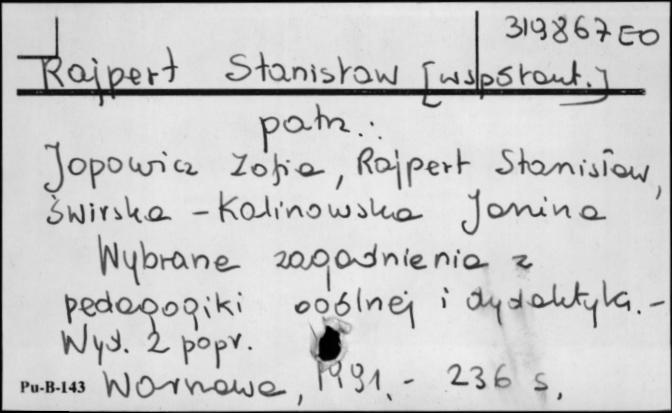 319867 EO
Rajpert Stanisław [współaut.]
patrz:
Jopowicz Zofia, Rajpert Stanisław,
Świrska-Kalinowska Janina
Wybrane zagadnienia z
pedagogiki ogólnej i dydaktyka.-
Wyd. 2 popr.
Pu-B-143 Warszawa, 1991.- 236 s.